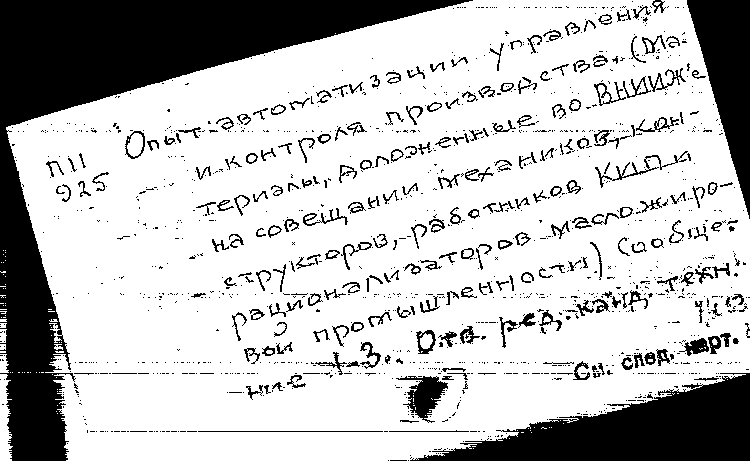 П11 Опыт автоматизации управления
925 и контроля производства. (Ма-
териалы, доложенные во ВНИИЖ'е
на совещании механиков, кон-
структоров, работников КИП и
рационализаторов масложиро-
вой промышленности) Сообще-
ние 1-3. Отв. ред. канд. техн.
См. след. карт.